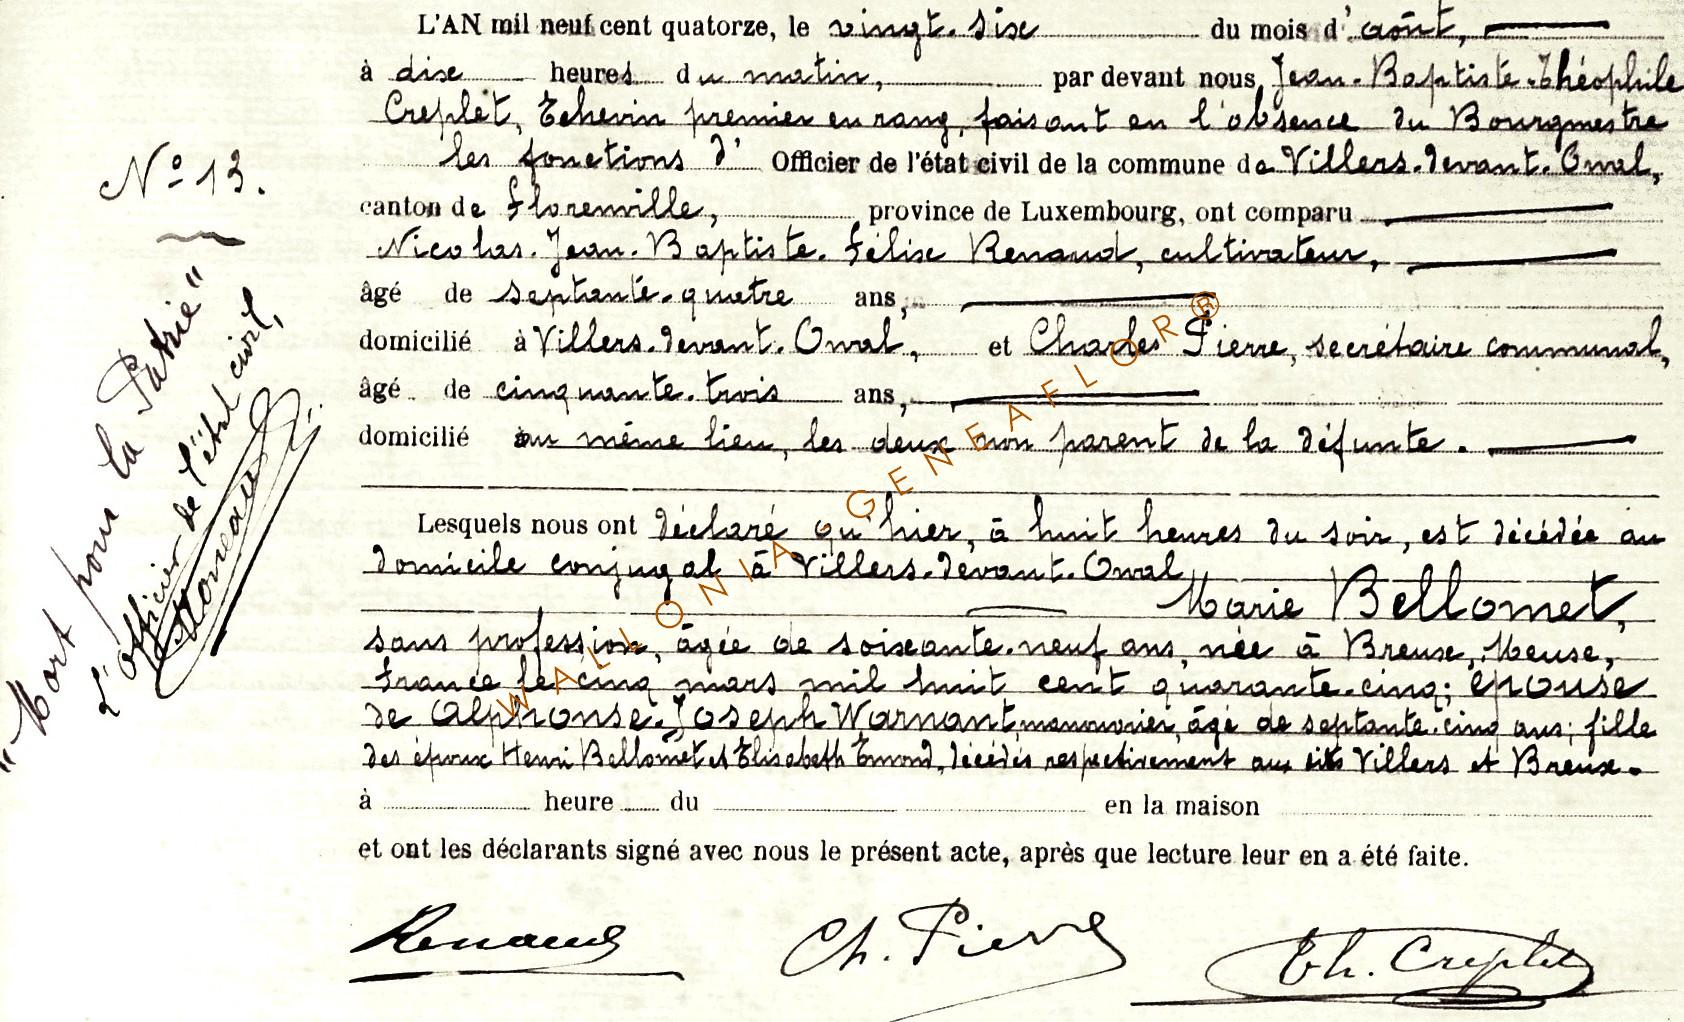 L'AN mil neuf cent quatorze, le vingt-six du mois d'août,
à dix heures du matin, par devant nous Jean-Baptiste-Théophile
Creplet, Echevin premier en rang, faisant en l'absence du Bourgmestre
les fonctions d' Officier de l'état civil de la commune de Villers-devant-Orval,
canton de Florenville, province de Luxembourg, ont comparu
Nicolas-Jean-Baptiste-Félix Renaud, cultivateur,
âgé de septante-quatre ans,
domicilié à Villers-devant-Orval, et Charles Pierre, secrétaire communal,
âgé de cinquante-trois ans,
domicilié au même lieu, les deux non parent de la défunte.
Lesquels nous ont déclaré qu'hier, à huit heures du soir, est décédée au
domicile conjugal à Villers-devant-Orval
Marie Bellomet,
sans profession, âgée de soixante-neuf ans, née à Breux, Meuse,
France le cinq mars mil huit cent quarante-cinq; épouse
de Alphonse-Joseph Warnant, manouvrier, âgé de septante-cinq ans; fille
des époux Henri Bellomet et Elisabeth Emond, décédés respectivement aux dits Villers et Breux.
à heure du en la maison
et ont les déclarants signé avec nous le présent acte, après que lecture leur en a été faite.
Renaud Ch. Pierre Th. Creplet
N° 13.
"Mort pour la Patrie"
L'officier de l'état civil,
WALLONIA GENEAFLOR®